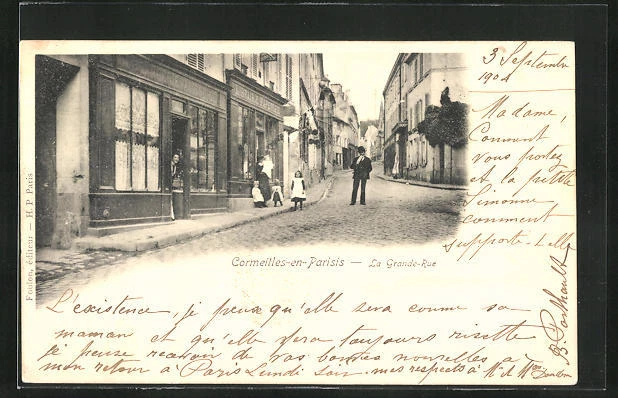 3 Septembre
1904
Madame,
Comment
vous portez
et la petite
Simonne
comment
supporte-t-elle
Foulon, éditeur — H. P. Paris
Cormeilles-en-Parisis — La Grande-Rue
L'existence, je pense qu'elle sera comme sa
maman et qu'elle fera toujours risette
Je pense recevoir de vos bonnes nouvelles à
mon retour à Paris Lundi soir. mes respects à Mr et Mme